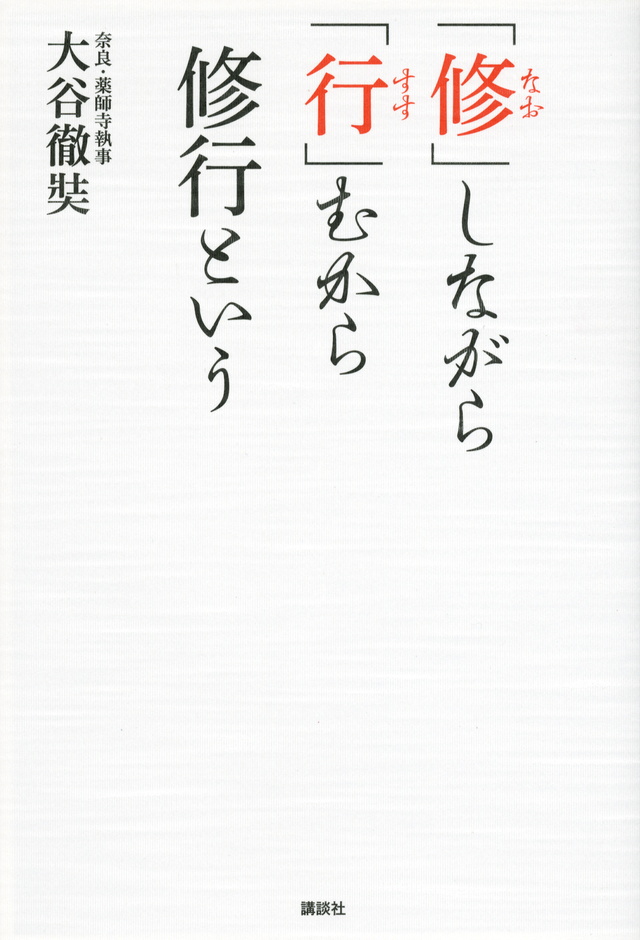 「修」しながら
なお
「行」むから
すす
修行という
奈良・薬師寺執事
大谷徹奘
講談社